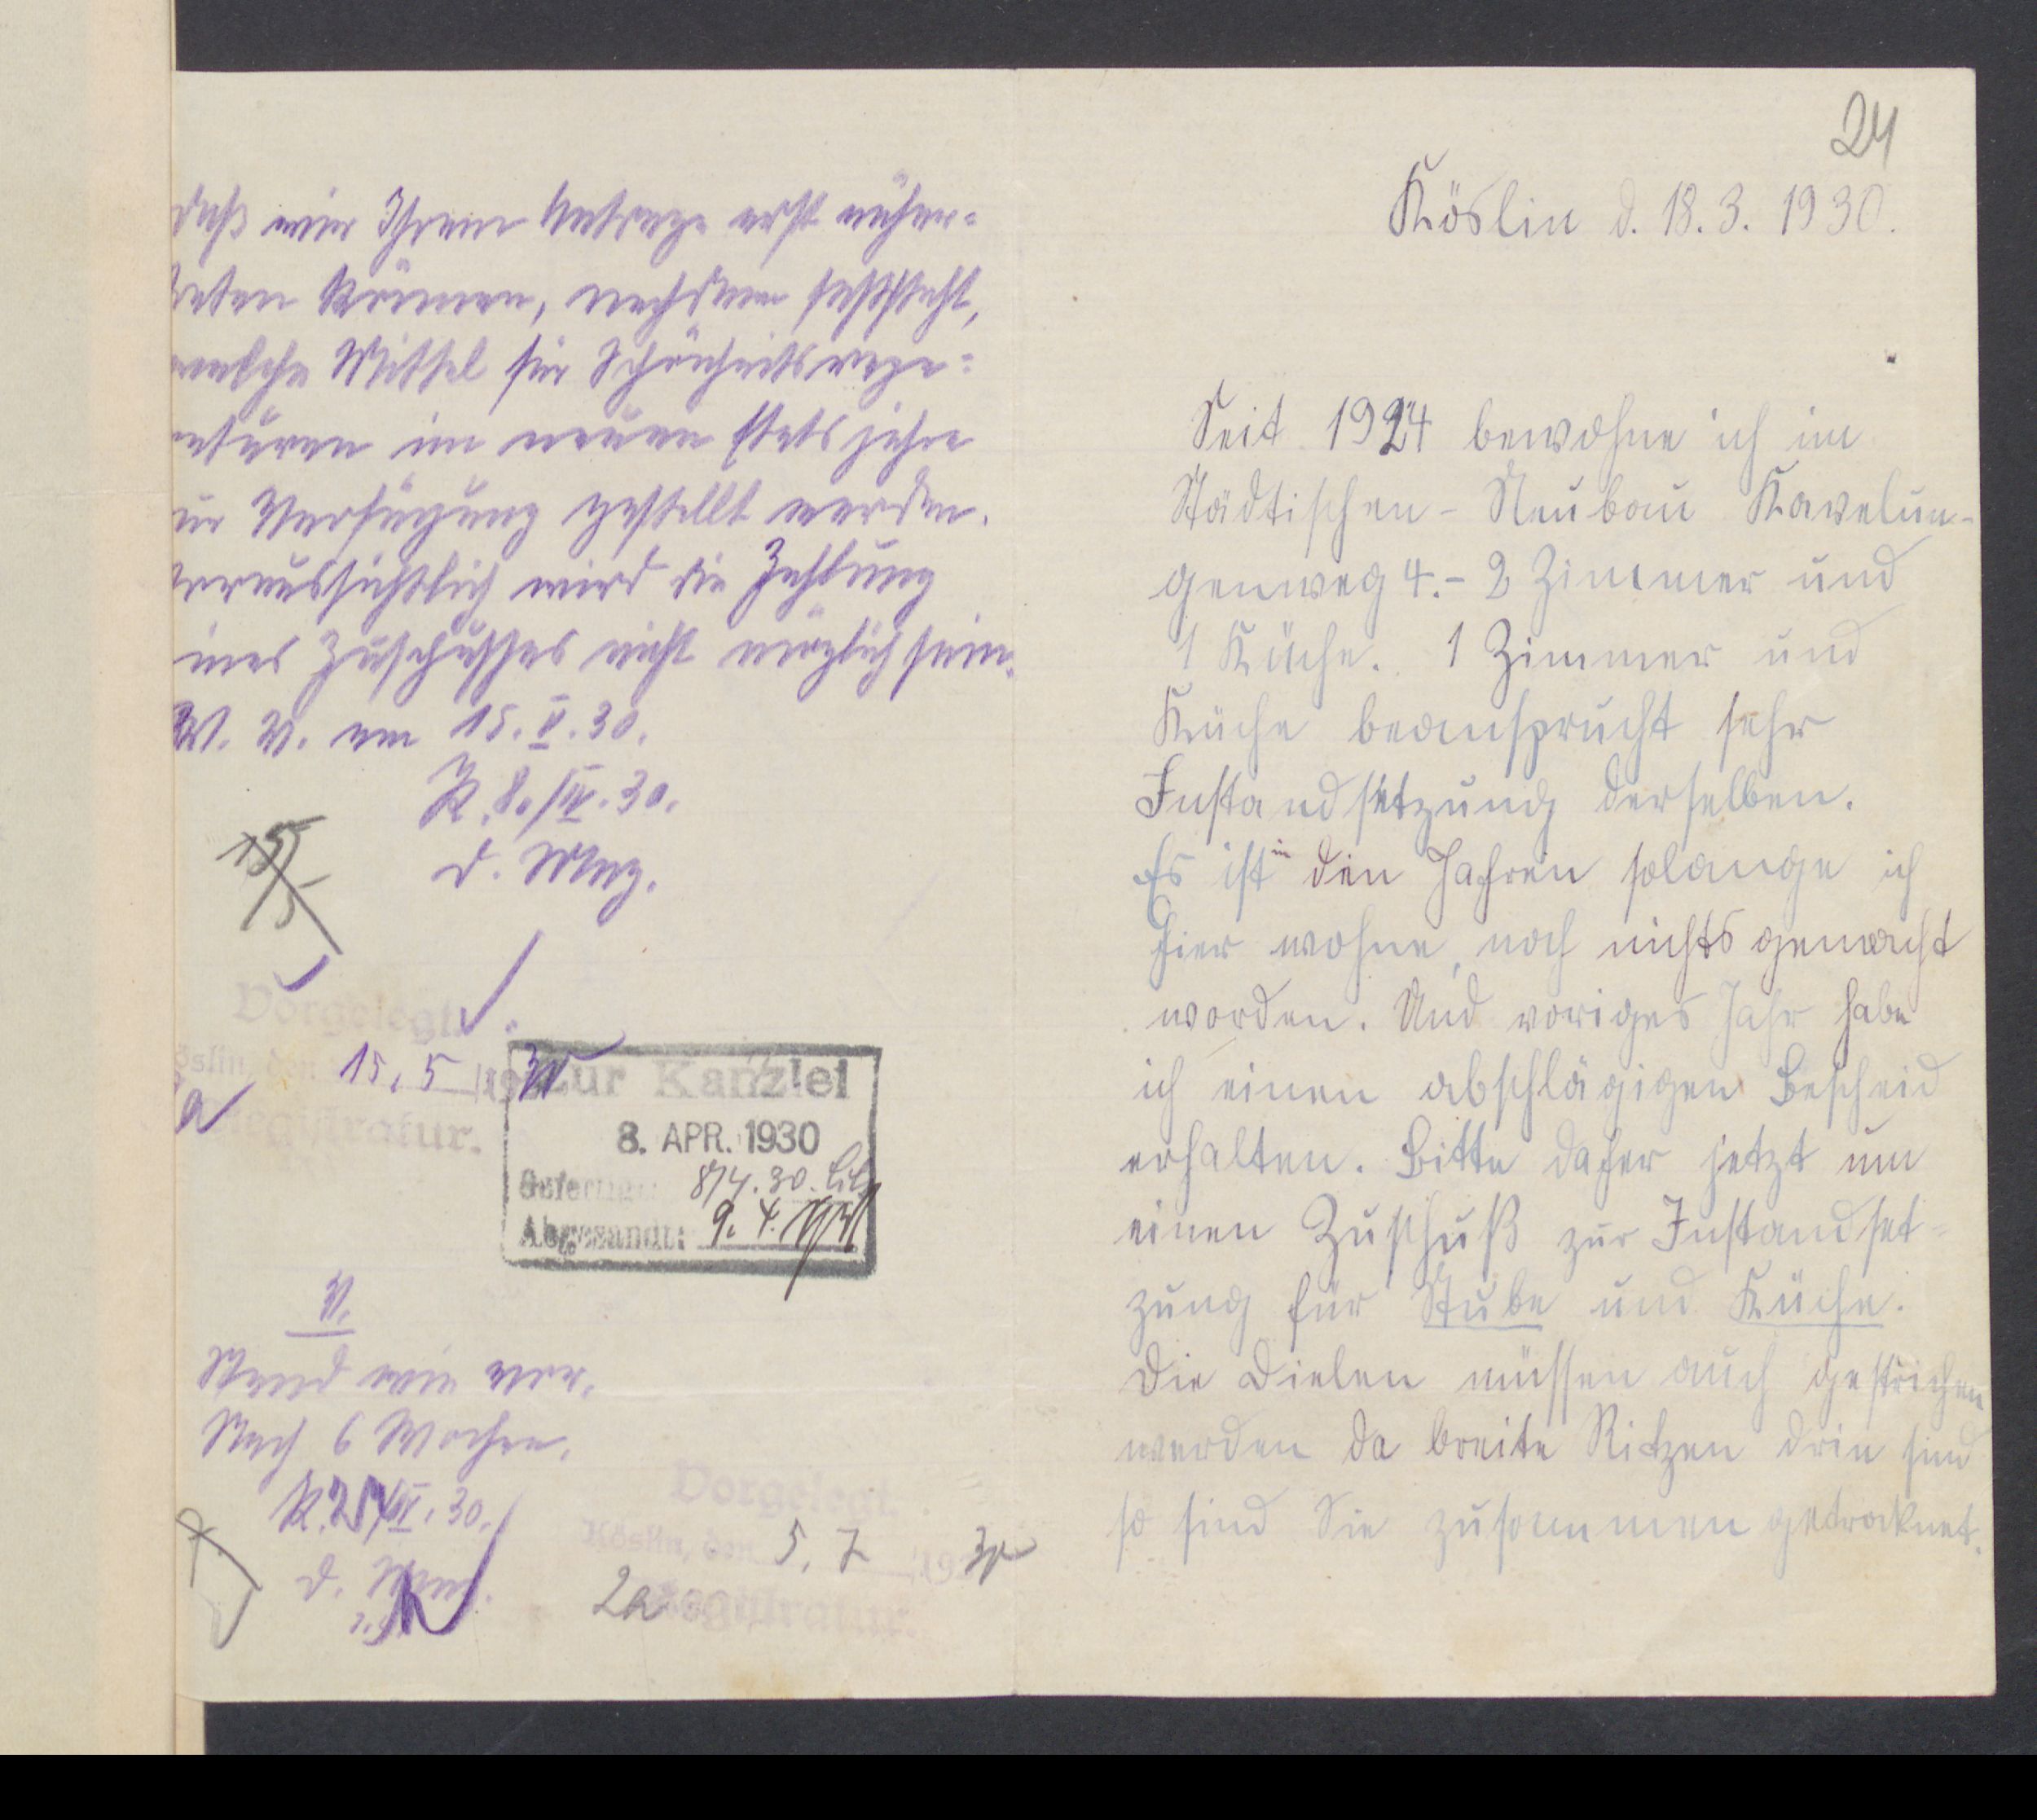 daß wir Ihrem Antrage erst näher-
treten können, nachdem feststeht,
welche Mittel für Schönheitsrepa-
raturen im neuen Etatsjahre
zur Verfügung gestellt werden.
Voraussichtlich wird die Zahlung
eines Zuschusses nicht möglich sein.
W. V. am 15.V.30.
K. 8./IV.30.
d. Mag.
15/5
Vorgelegt.
Köslin, den 15.5 1930
Registratur.
Zur Kanzlei
8. APR. 1930
Gefertigt: 8/4.30.
Abgesandt: 9.4.
V.
Stand wie vor.
Nach 6 Wochen.
K. 30.
d. Mag.
Vorgelegt.
Köslin, den 5.7 1930
2a Registratur.
24
Köslin d. 18.3.1930.
Seit 1924 bewohne ich im
Städtischen-Neubau Kavelun-
genweg 4.- 2 Zimmer und
1 Küche. 1 Zimmer und
Küche beansprucht sehr
Instandsetzung derselben.
Es ist in den Jahren solange ich
hier wohne, noch nichts gemacht
worden. Und voriges Jahr habe
ich einen abschlägigen Bescheid
erhalten. Bitte daher jetzt um
einen Zuschuß zur Instandset-
zung für Stube und Küche.
Die Dielen müssen auch gestrichen
werden da breite Ritzen drin sind
so sind Sie zusammen getrocknet.